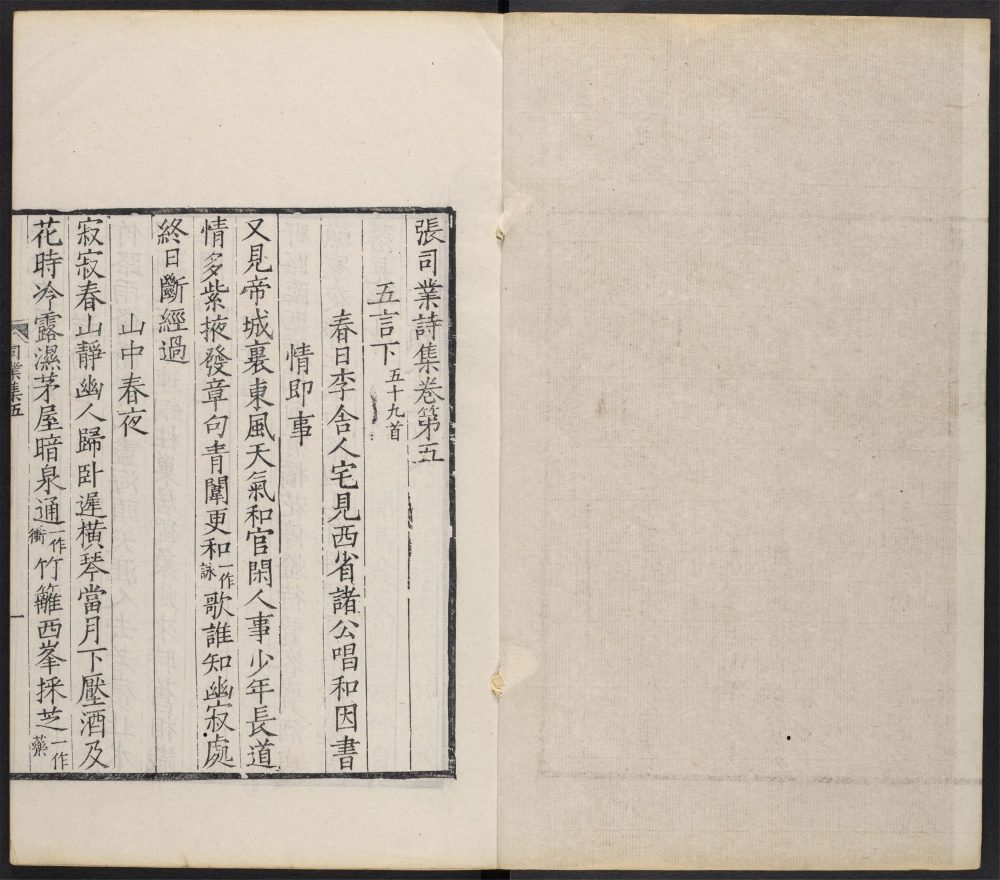 張司業詩集卷第五
五言下五十九首
春日李舍人宅見西省諸公唱和因書
情即事
又見帝城裏東風天氣和官閑人事少年長道
情多紫掖發章句青闈更和一作詠歌誰知幽寂處
終日斷經過
山中春夜
寂寂春山靜幽人歸卧遲橫琴當月下壓酒及
花時冷露濕茅屋暗泉通一作衝竹籬西峯採芝一作藥
司業集五
一